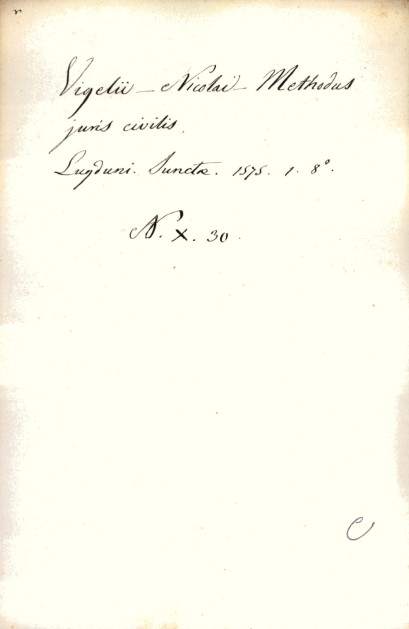 Vigelii - Nicolai - Methodus
juris civilis.
Lugduni. Junctæ. 1575. 1. 8°.
N. X. 30.
C